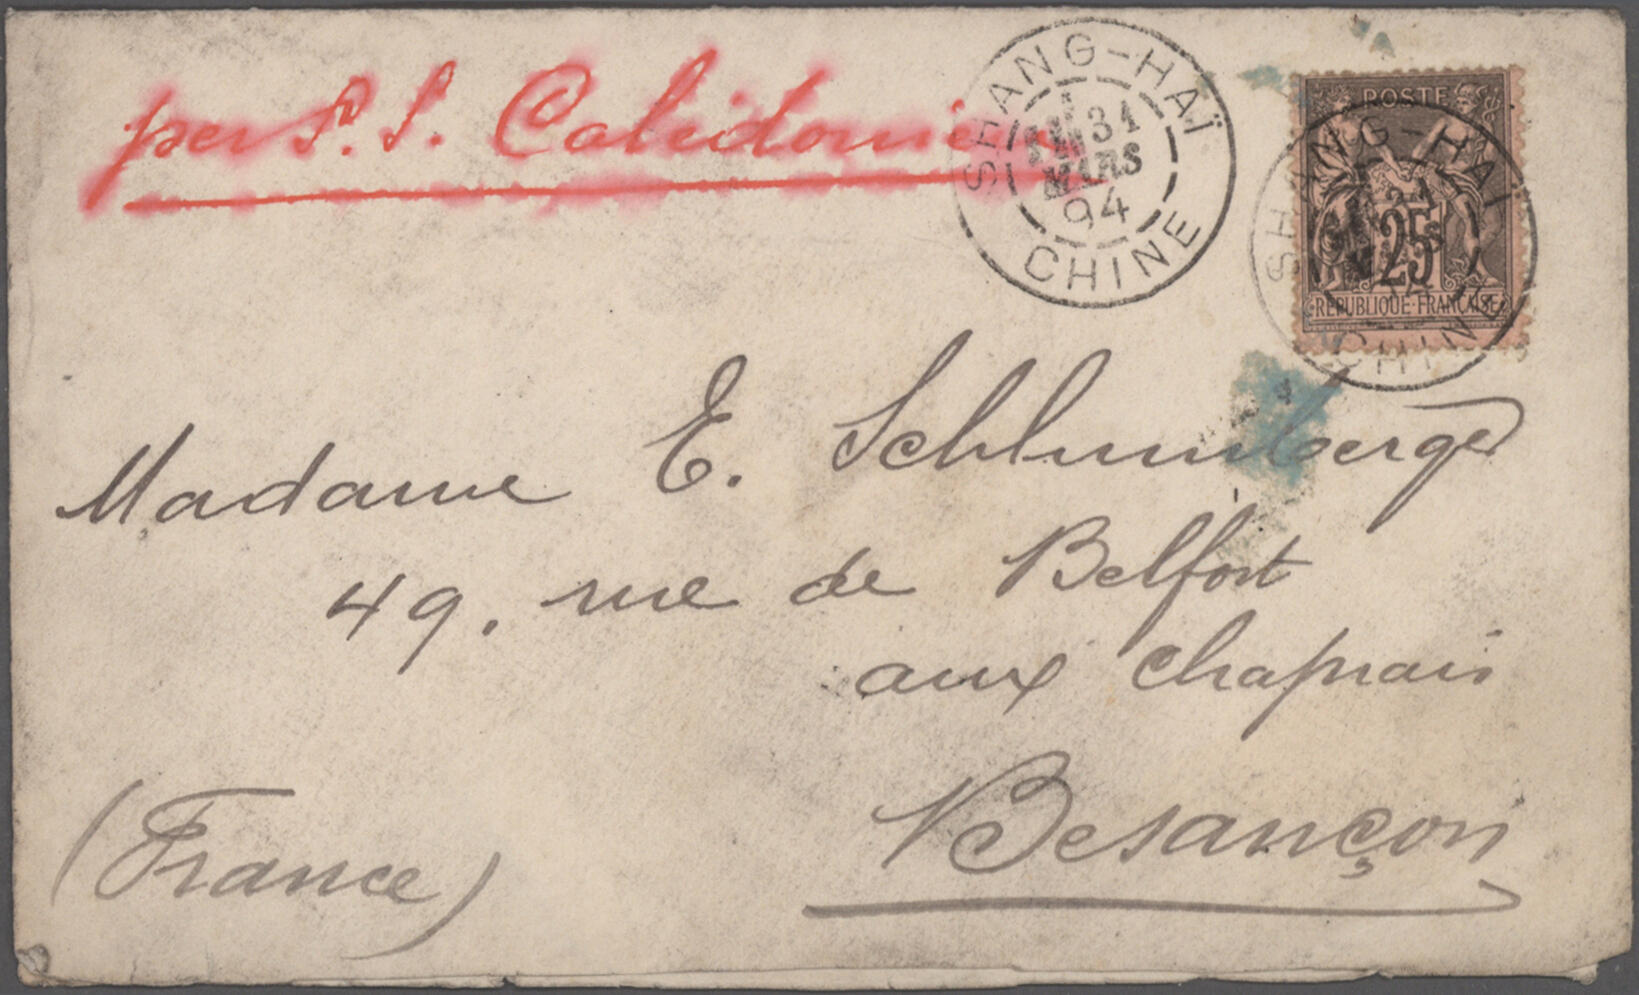 per S. S. Calédonien
SHANG-HAÏ
31
MARS
94
CHINE
POSTE
25
REPUBLIQUE FRANÇAISE
SHANG-HAÏ
CHINE
Madame E. Schlumberger
49, rue de Belfort
aux Chaprais
Besançon
(France)